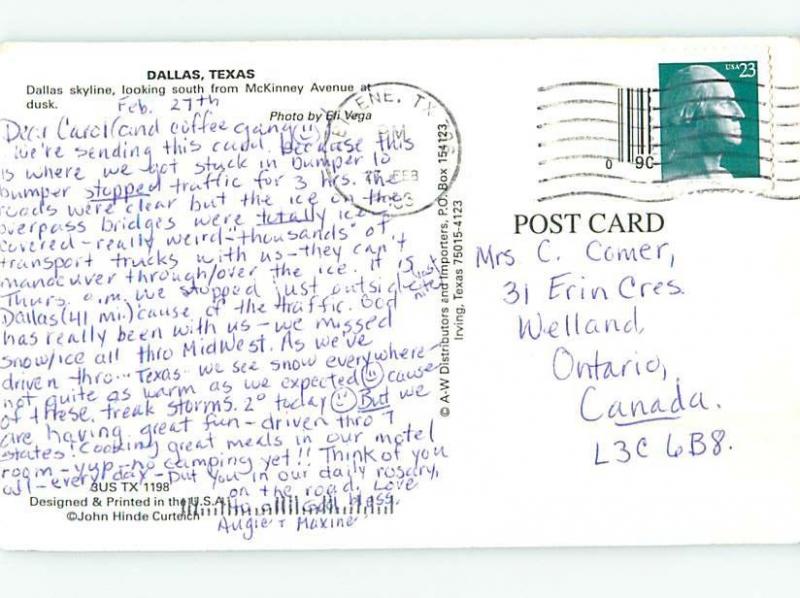 DALLAS, TEXAS
Dallas skyline, looking south from McKinney Avenue at
dusk.
Photo by Eli Vega
Feb. 27th
Dear Carol (and coffee gang)
We're sending this card because this
is where we got stuck in bumper to
bumper stopped traffic for 3 hrs. The
roads were clear but the ice on the
overpass bridges were totally ice
covered - really weird - "thousands" of
transport trucks with us - they can't
manoeuver through/over the ice. It is
Thurs. a.m. we stopped just outside last nite
Dallas (41 mi.) cause of the traffic. God
has really been with us - we missed
snow/ice all thro MidWest. As we've
driven thro... Texas we see snow everywhere -
not quite as warm as we expected cause
of these freak storms. 2° today But we
are having great fun - driven thro 7
states! Cooking great meals in our motel
room - yyp - no camping yet!! Think of you
all - every day - put you in our daily rosary,
on the road. Love
God bless.
Augie + Maxine
3US TX 1198
Designed & Printed in the U.S.A.
©John Hinde Curteich
© A-W Distributors and Importers, P.O. Box 154123,
Irving, Texas 75015-4123
ENE, TX
PM
FEB
USA 23
0 90
POST CARD
Mrs C. Comer,
31 Erin Cres.
Welland,
Ontario,
Canada.
L3C 6B8.